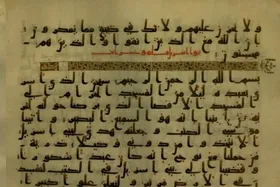 ولا تحزن عليهم ولا تك في ضيق مما يمكرو
ن ان الله مع الذين اتقوا والذين هم
محسنون
بسم الله الرحمن الرحيم سبحن الذي اسر
ى بعبده ليلا من المسجد الحرام الى
المسجد الاقصا الذي بركنا حوله لنر
يه من ايتنا انه هو السميع البصير واتينا
موسى الكتب وجعلنه هدى لبني اسريل
الا تتخذوا من دوني وكيلا ذرية
من حملنا مع نوح انه كان عبدا شكورا و